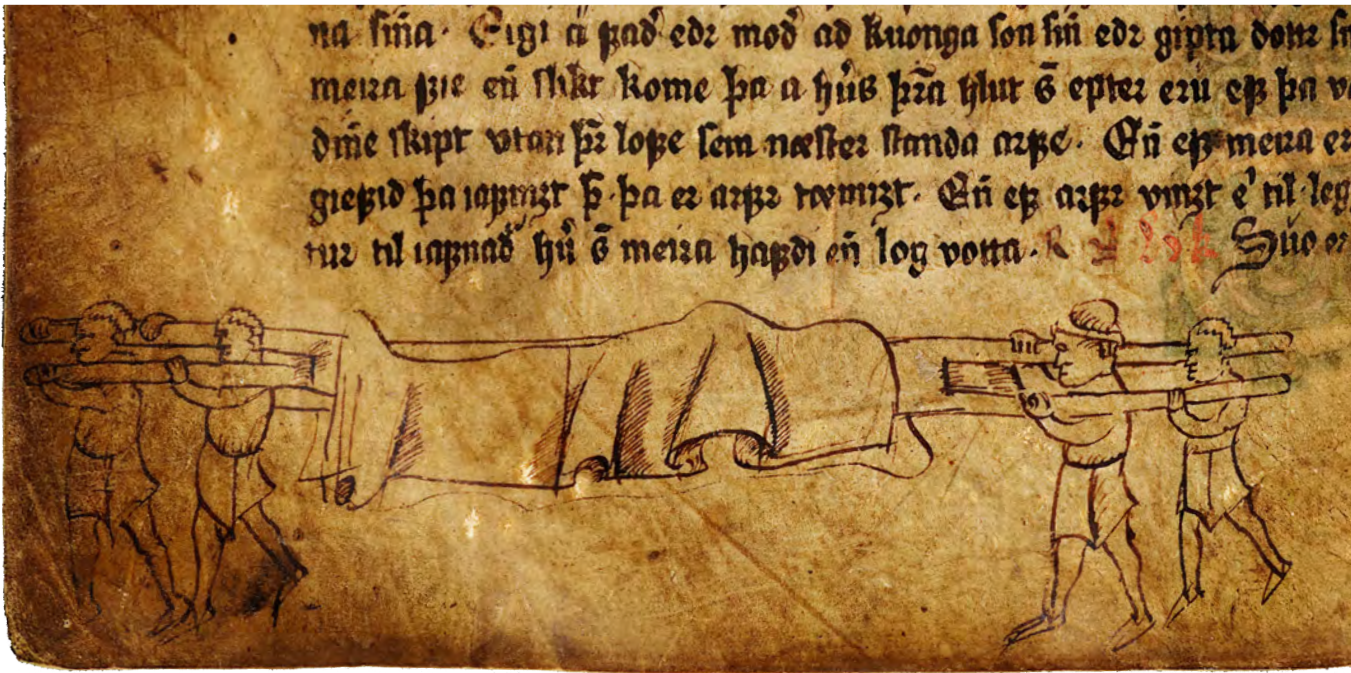 na sina. Eigi a fad̄ edr mod̄ ad kuonga son sin̄ edr gipta dottr
meira fie en̄ slikt kome þa a hu̓s þr̄a hlut s̄ epter eru ef þa
dm̄e skipt vtan þr̄ lofe sem næster standa arfe. En̄ ef meira er
giefid þa iafnizt þ̄. þa er arfr tæmizt. En̄ ef arfr vinzt e᾽ til
tur til iafnad̄ hu̓ s̄ meira hafdi en̄ log votta. Suo er